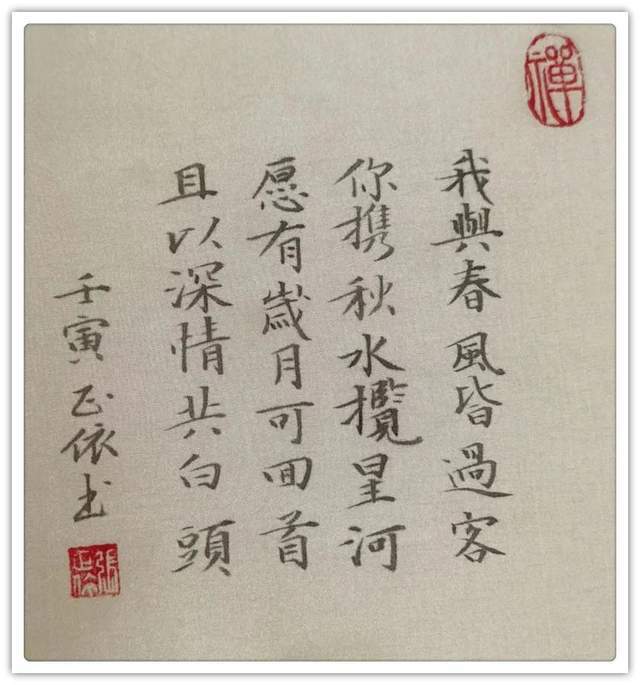 禪
我與春風皆過客
你携秋水攬星河
愿有歲月可囬首
且以深情共白頭
壬寅正依书